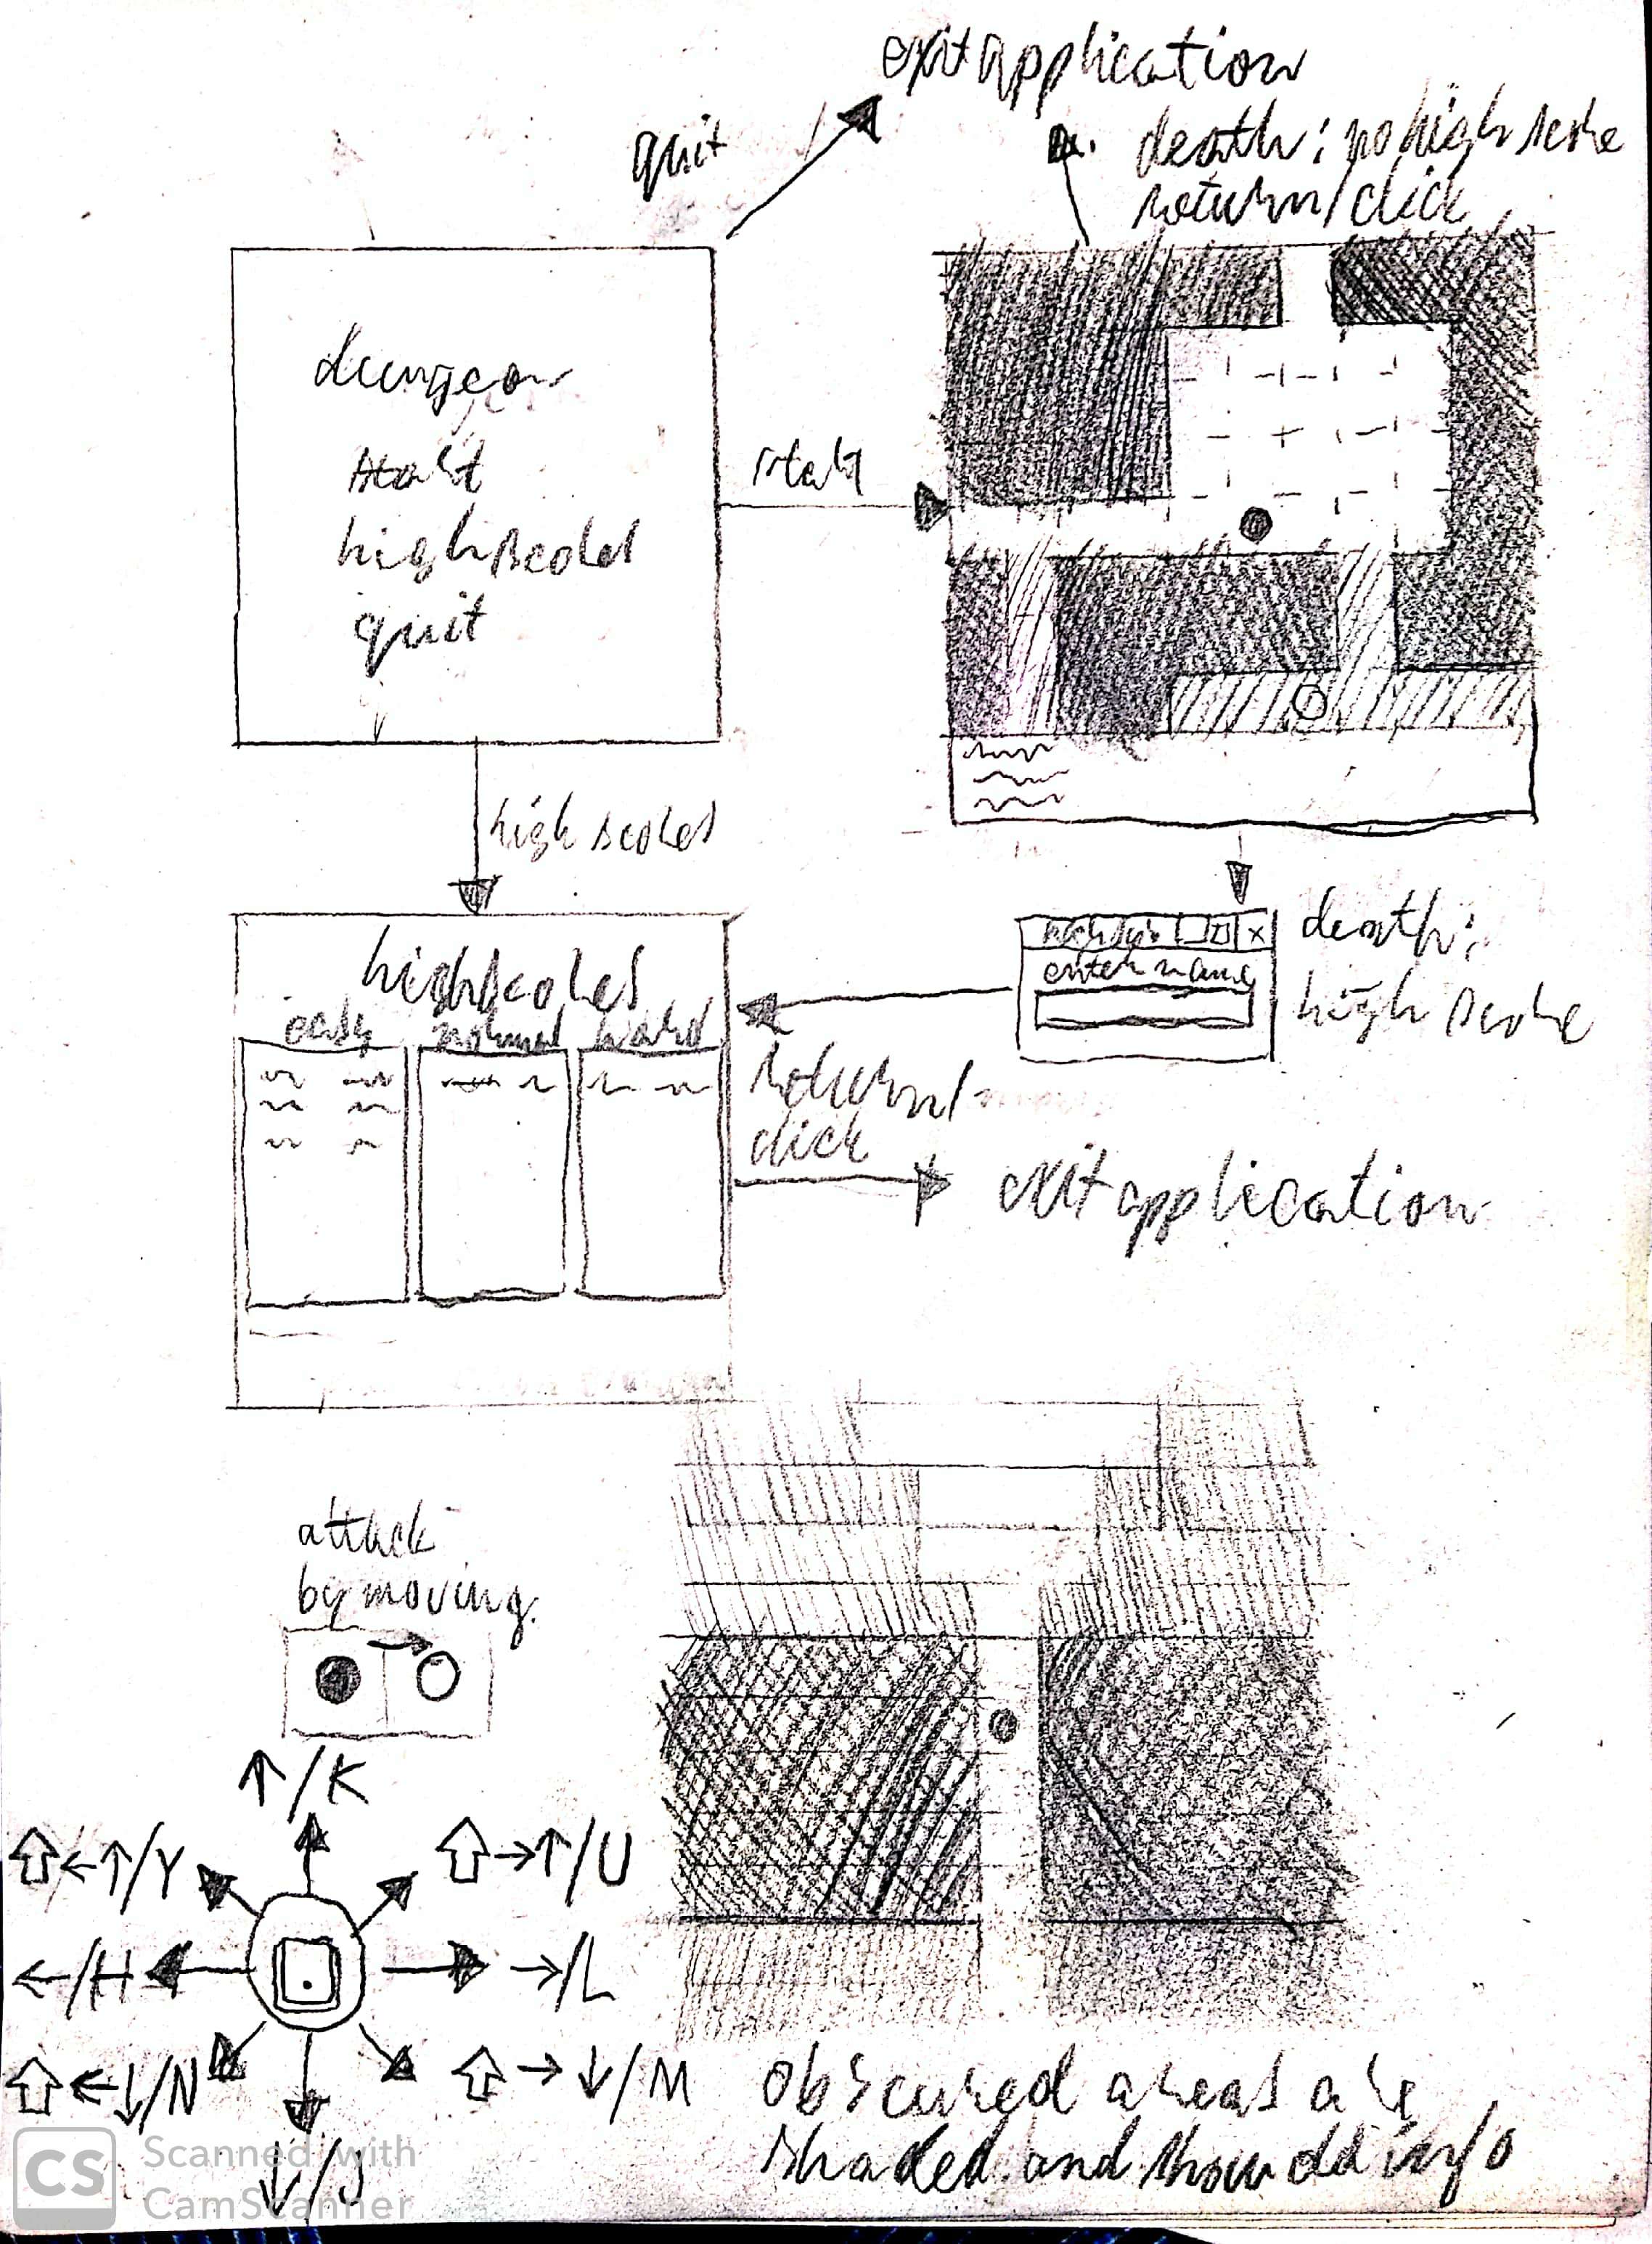 exit application
quit
death: no high score
return/click
dungeon
start
highscores
quit
start
high scores
highscores
easy normal hard
enter name
death:
high score
return/
click
exit application
attack
by moving.
↑/K
⇧←↑/Y
⇧→↑/U
←/H
→/L
⇧←↓/N
⇧→↓/M
↓/J
obscured areas are
shaded and show old info
CS Scanned with
CamScanner